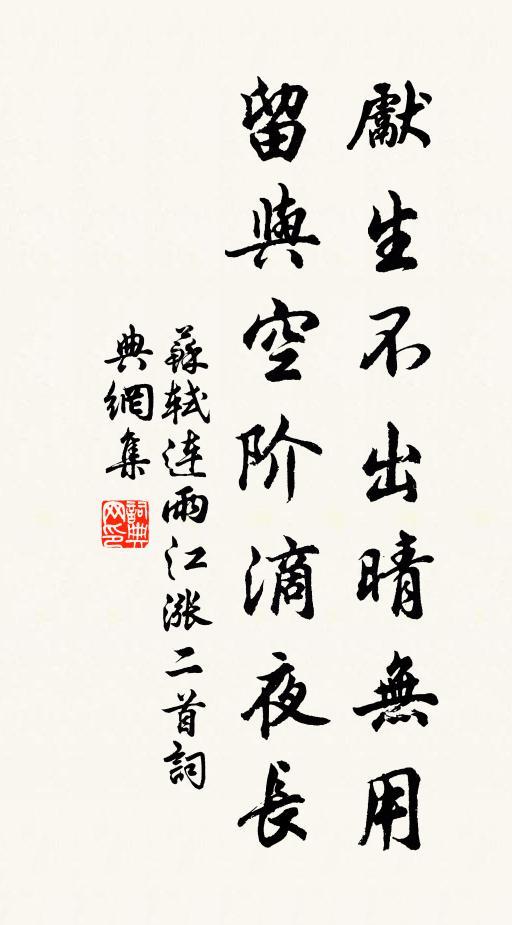 獻生不出晴無用
留與空阶滴夜長
蘇軾连雨江漲二首詞
典網集
詞典
网印